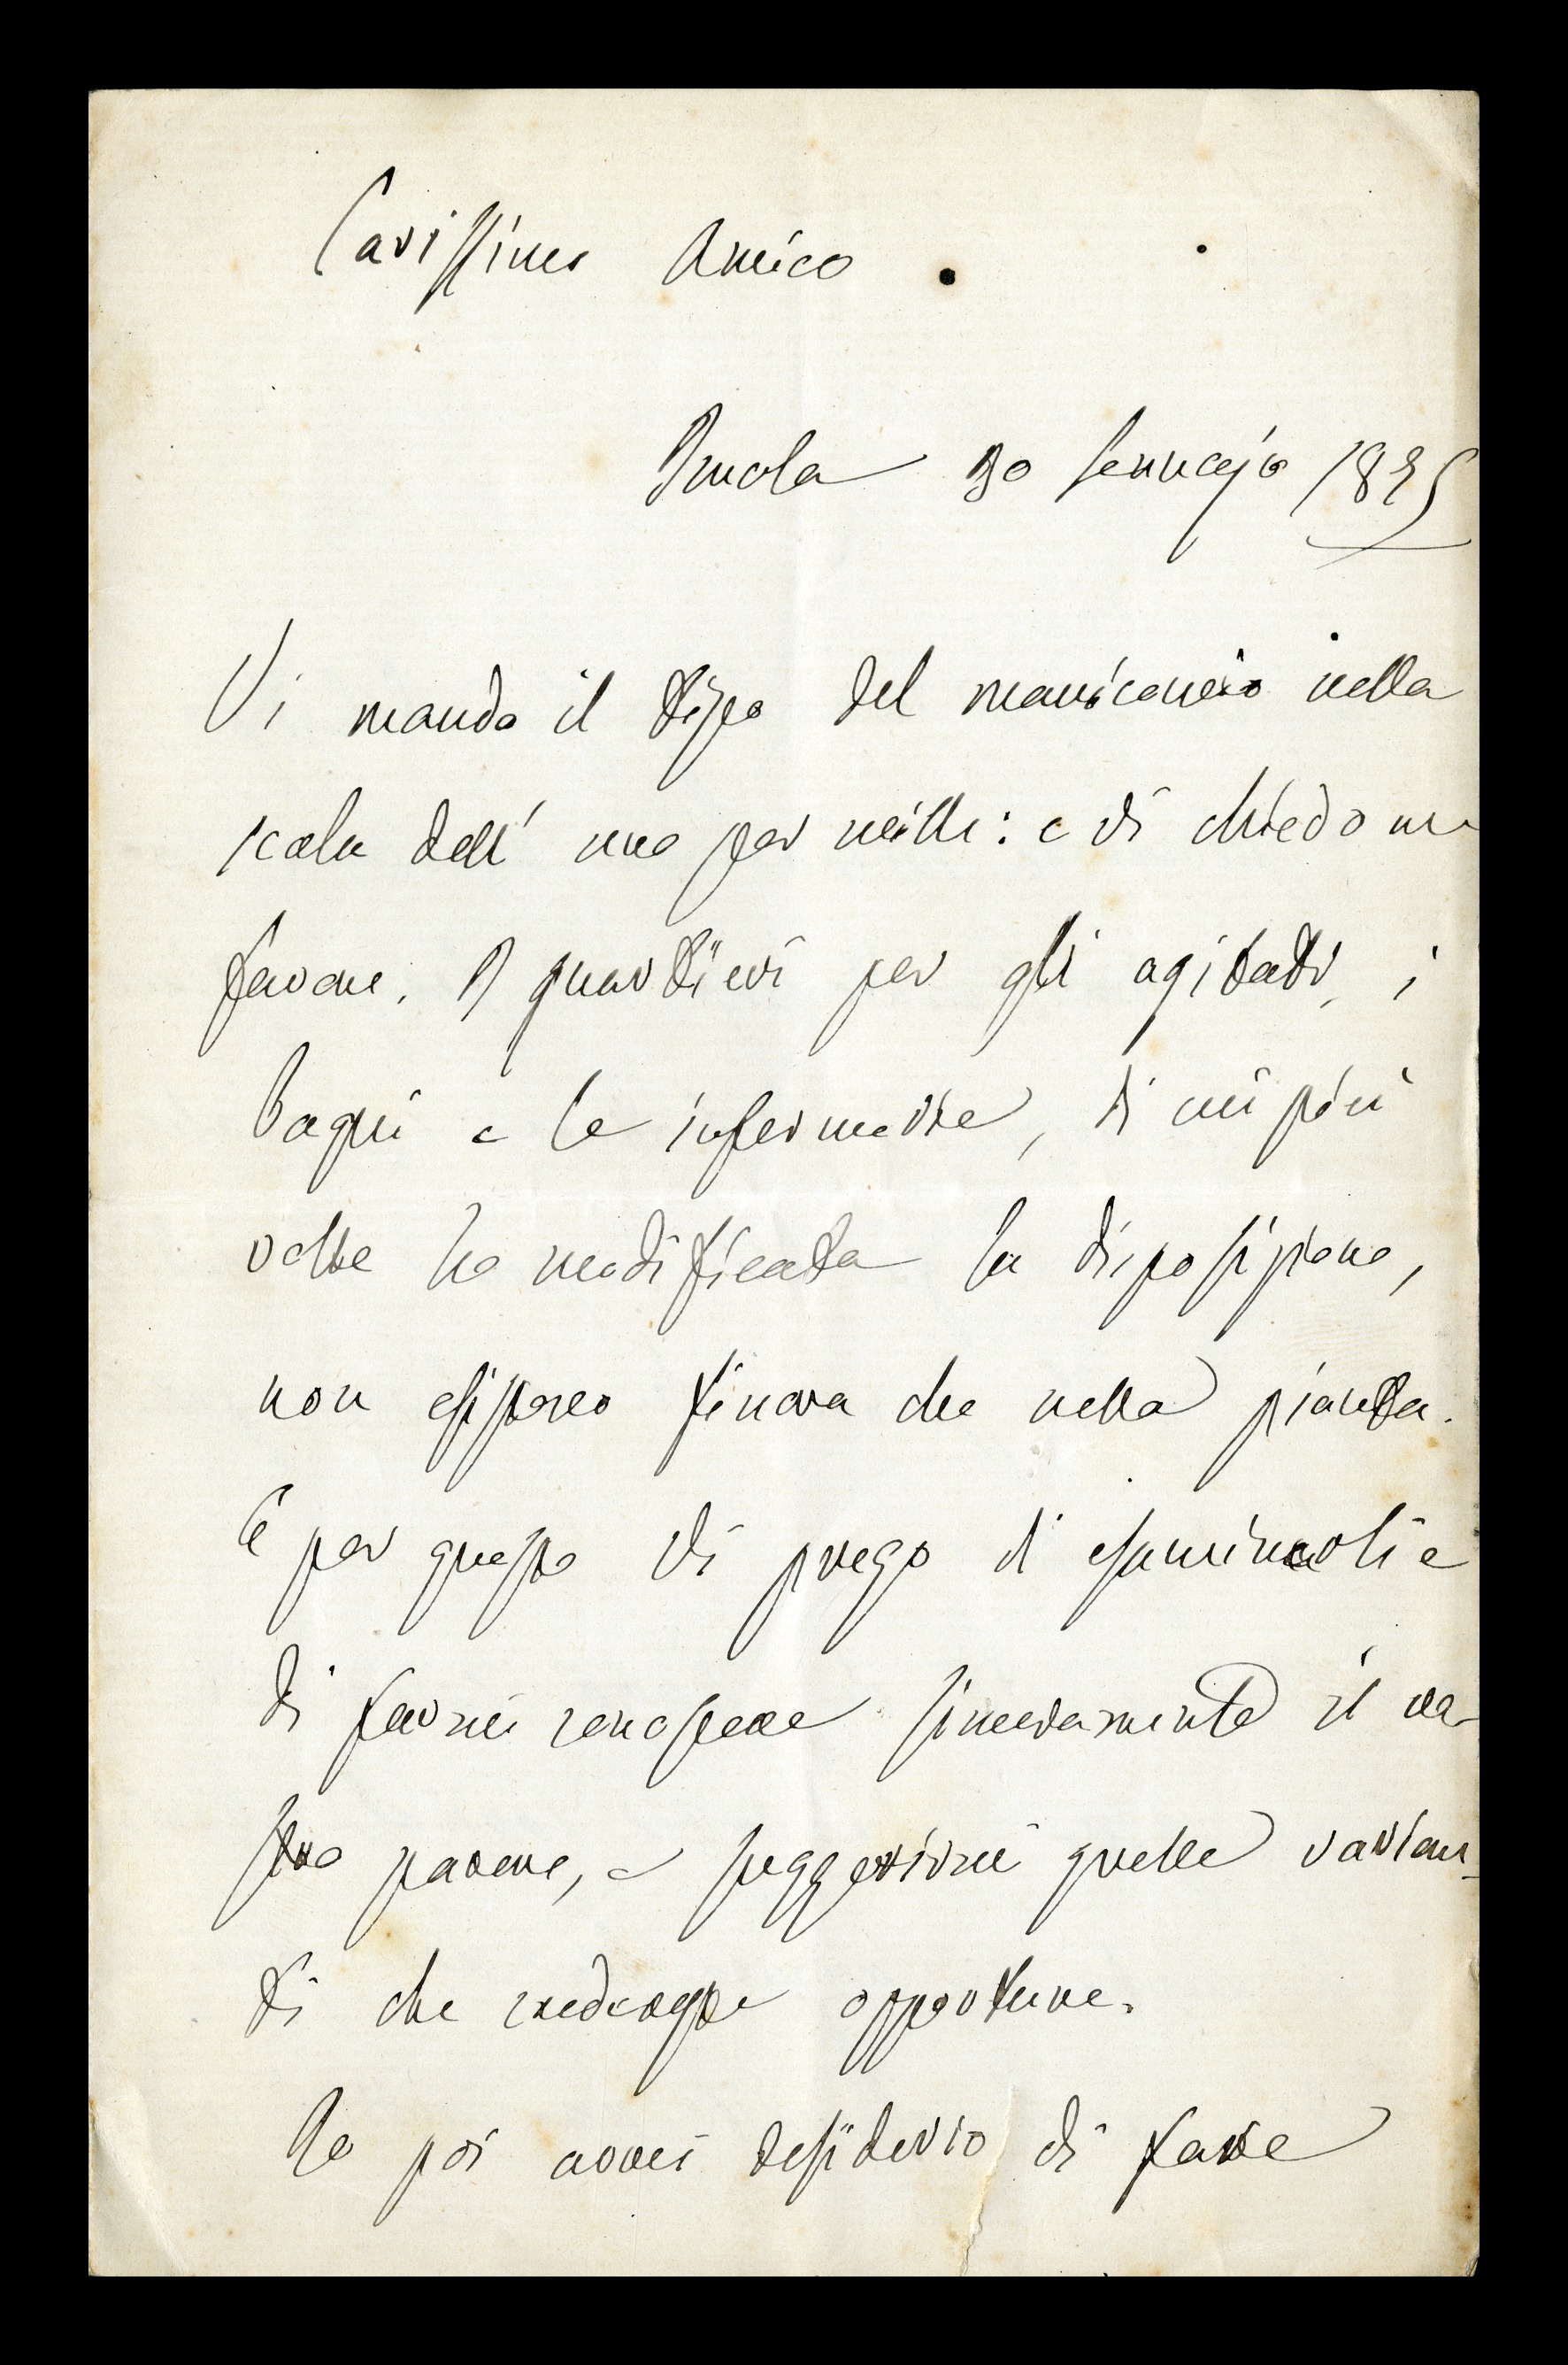 Carissimo Amico
Imola 30 Gennajo 1875
Vi mando il tipo del manicomio nella
scala dell' uno per mille: e vi chiedo un
favore. I quartieri per gli agitati, i
bagni e le infermerie, di cui più
volte ho modificata la disposizione,
non esistono finora che nella pianta.
E per questo vi prego di esaminarli e
di farmi conoscere sinceramente il vo-
stro parere, e suggerirmi quelle varian-
ti che credeste opportune.
Io poi avrei desiderio di fare